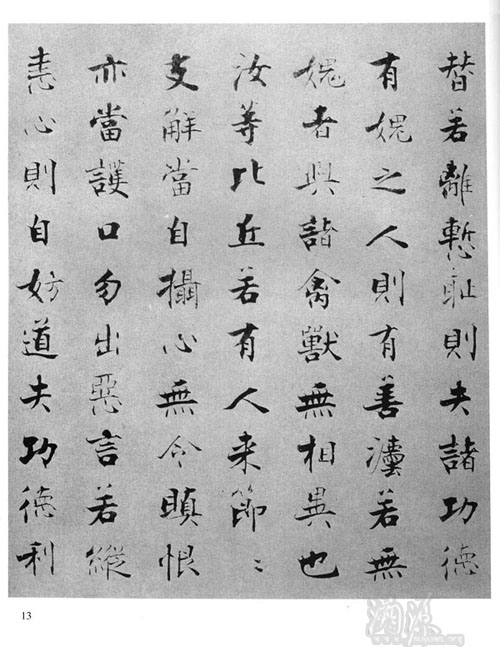 替若離慙耻則失諸功德
有媿之人則有善灋若無
媿者與諸禽獸無相異也
汝等比丘若有人来節〻
支解當自攝心無令瞋恨
亦當護口勿出惡言若縱
恚心則自妨道失功德利
13